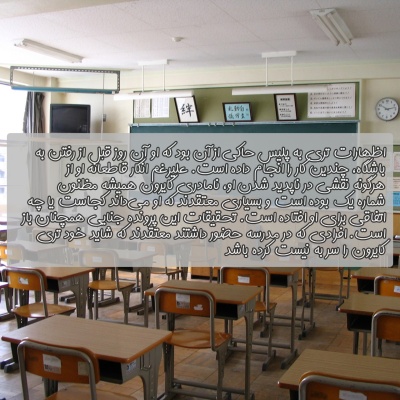 絆
اظهارات تری به پلیس حاکی ازآن بود که او آن روز قبل از رفتن به
باشگاه، چندین کار را انجام داده است. علیرغم انکار قاطعانه او از
هرگونه نقشی در ناپدید شدن او، نامادری کایرون همیشه مظنون
شماره یک بوده است و بسیاری معتقدند که او می‌داند کجاست یا چه
اتفاقی برای او افتاده است. تحقیقات این پرونده جنایی همچنان باز
است. افرادی که در مدرسه حضور داشتند معتقدند که شاید خود تری
کایرون را سر به نیست کرده باشد